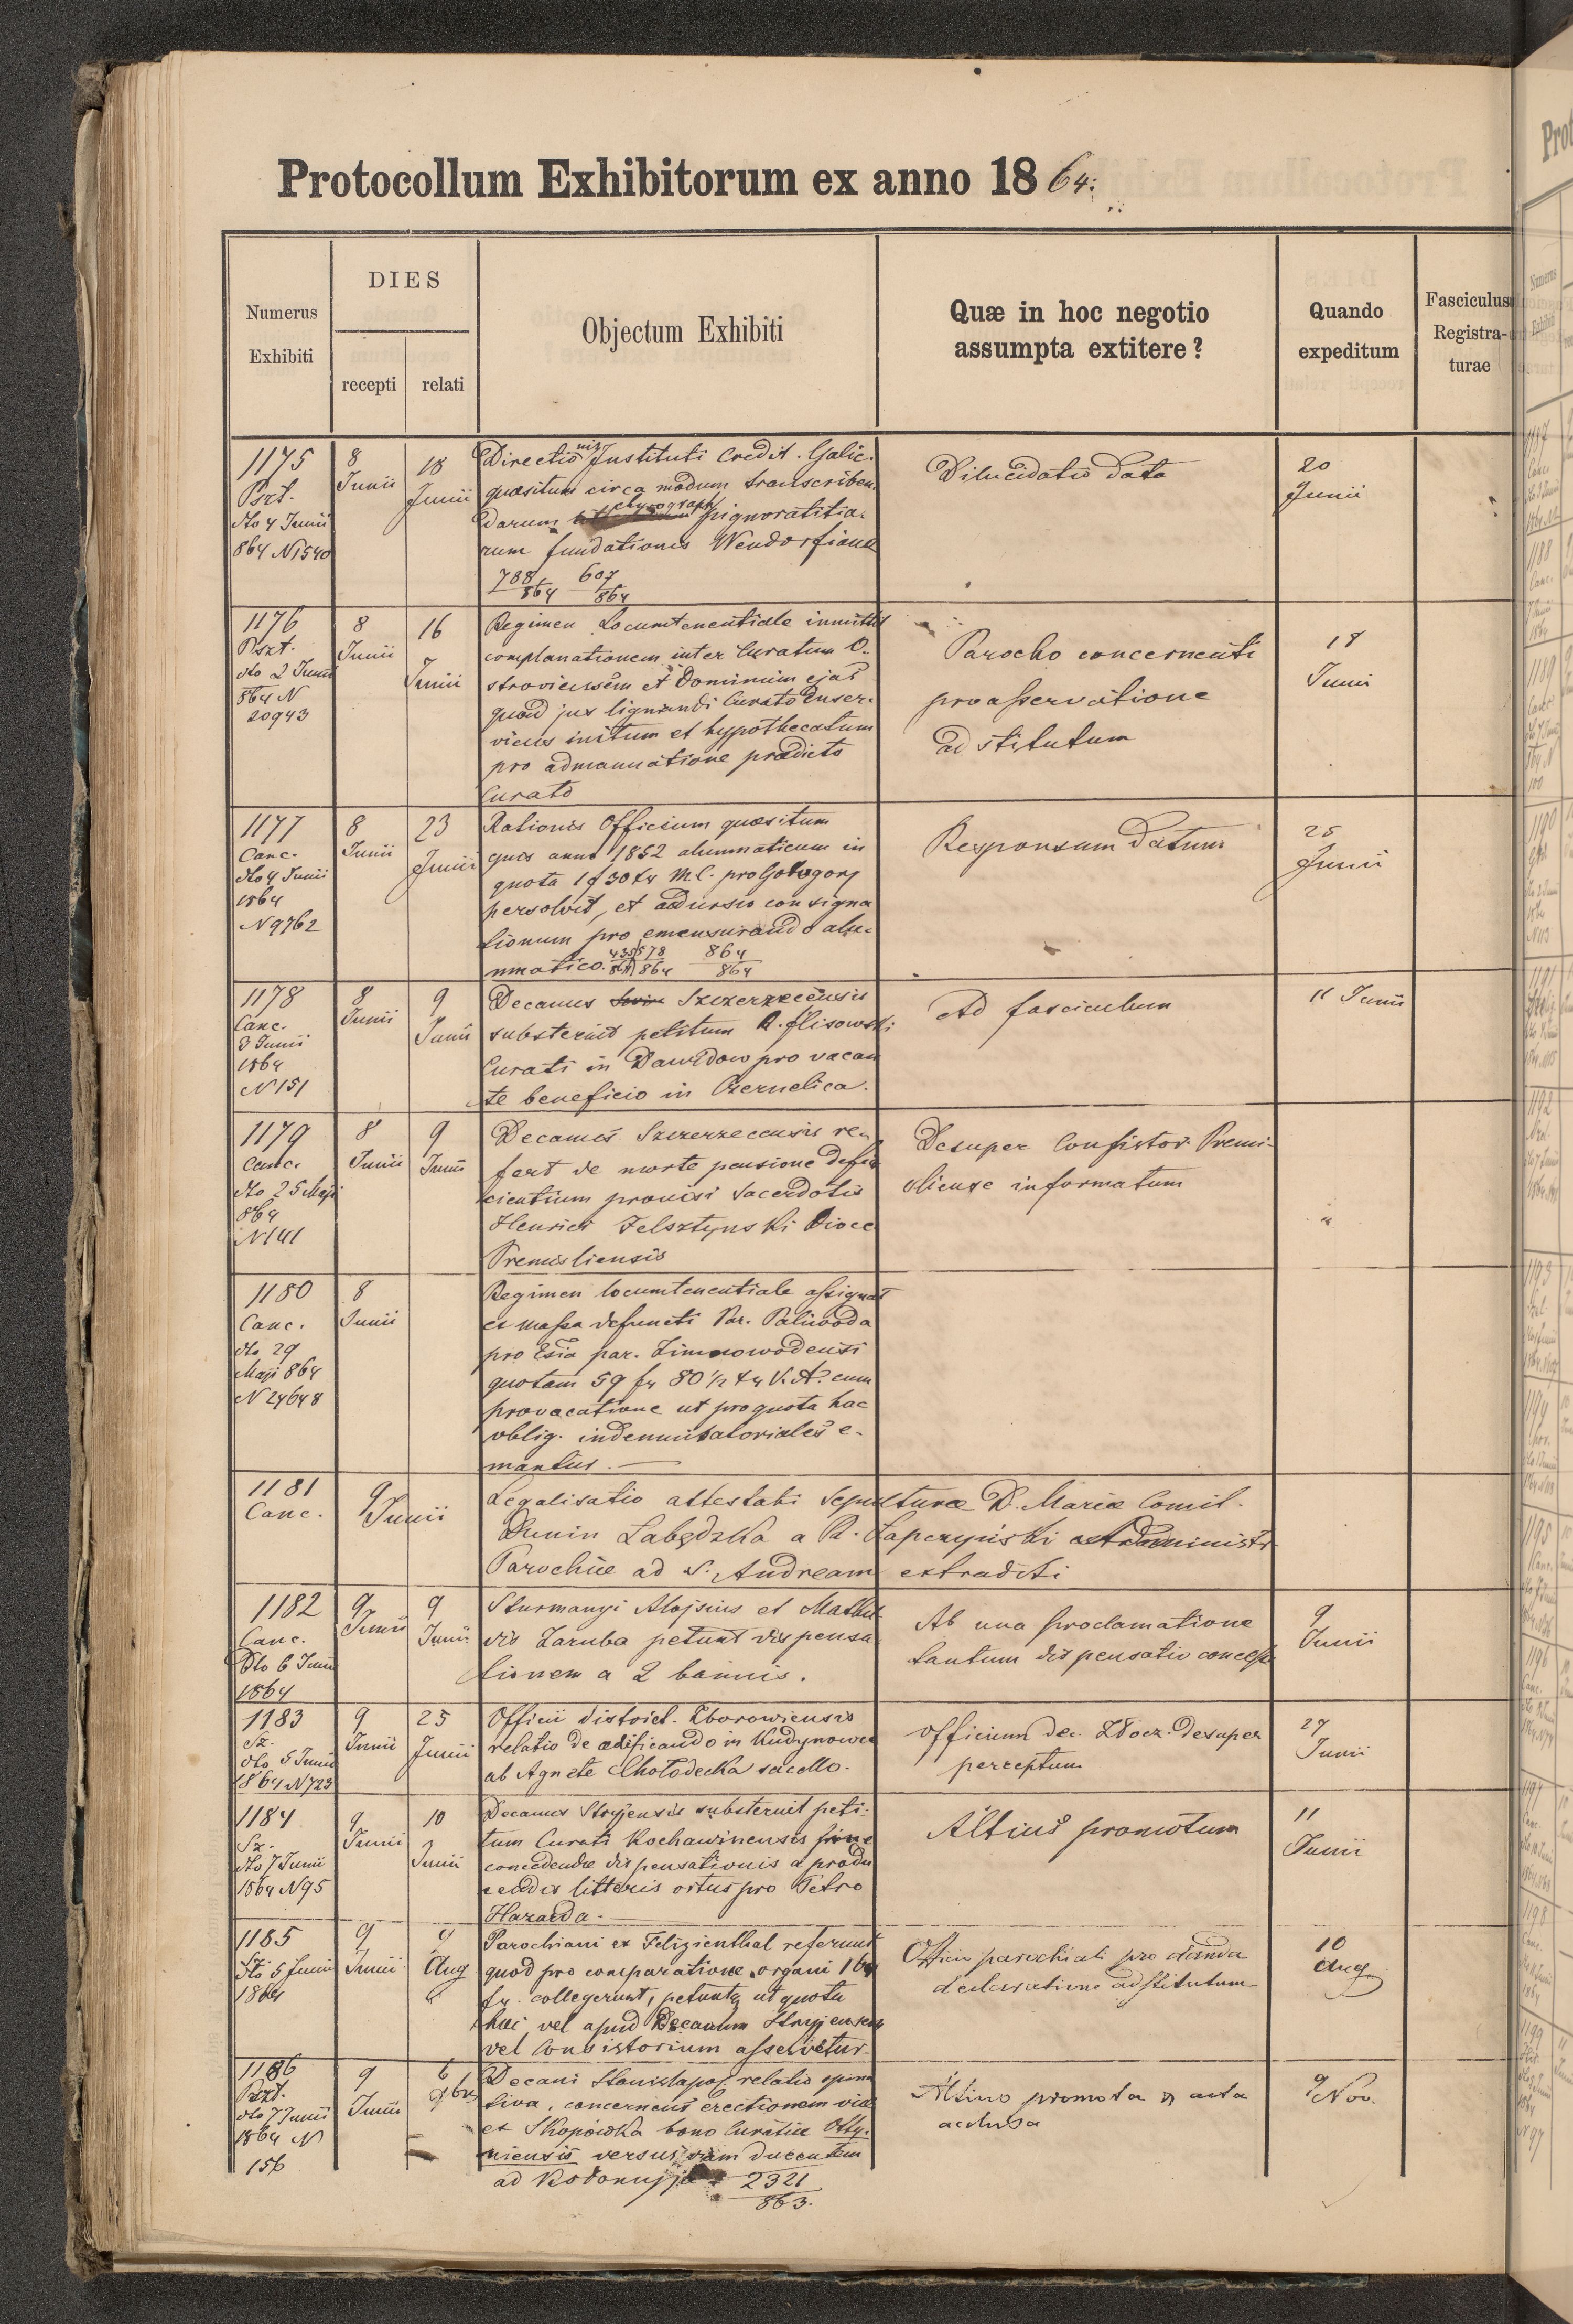 Protocollum Exhibitorum ex anno 1864.
Numerus Exhibiti
DIES
recepti
relati
Objectum Exhibiti
Quæ in hoc negotio assumpta extitere?
Quando expeditum
Fasciculus Registra-turae
1175
Pszt.
dto 4 Junii
864 N 1540
8
Junii
18
Junii
Directionis Instituti Credit. Galic.
quæsitum circa modum transcriben
darum chyrograph pignoratitia-
rum fundationis Wendorfianæ
788/864 607/864
Dilucidatio data
20
Junii
1176
Pszt.
dto 2 Junii
864 N
20943
8
Junii
16
Junii
Regimen Locumtenentiale inmittit
complanationem inter Curatum O-
stroviensem et Dominium ejat
quoad jus lignandi Curato inser-
viens initum et hypothecatum
pro admanuatione prædicto
Curato
Parocho concernenti
pro asservatione
adstitutum
18
Junii
1177
Canc.
dto 4 Junii
1864
N 9762
8
Junii
23
Junii
Rationis Officium quæsitum
quis anno 1852 alumnaticum in
quota 1 f 30 Xr M.C. pro Gologory
persolvit, et consigna
tionum pro emensurando alu-
mnatico. 435/864 578/864 864/864
Responsum datum
25
Junii
1178
Canc.
3 Junii
1864
N 151
8
Junii
9
Junii
Decanus Szczerzecensis
substernit petitum R. Glisowski
Curati in Dawidow pro vacan
te beneficio in Czernelica.
Ad fasciculum
11 Junii
1179
Canc.
dto 25 Maji
864
N 141
8
Junii
9
Junii
Decanus Szczerzecensis re-
fert de morte pensione defi
cientium provisi Sacerdotis
Henrici Felsztynski Dioec
Premisliensis
Desuper Consistor. Premi-
sliense informatum
"
1180
Canc.
dto 29
Maji 864
N 24648
8
Junii
Regimen locumtenentiale assignat
ex massa defuncti Par. Paliwoda
pro Ecsia par. Zimnowodensi
quotam 59 fr 80 1/2 Xr V.A. cum
provocatione ut pro quota hac
oblig. indemnisatoriales e-
mantur.
1181
Canc.
9
Junii
Legalisatio attestati Sepulturæ D. Mariæ Comit.
Dunin Łabędzka a R. Łapczyński Administr
Parochiæ ad S. Andream extraditi
1182
Canc.
dto 6 Junii
1864
9
Junii
9
Junii
Sturmanyi Alojsius et Mathil
dis Zaruba petunt dispensa
tionem a 2 bannis.
Ab una proclamatione
tantum dispensatio concessa
9
Junii
1183
Sz.
dto 5 Junii
1864 N 723
9
Junii
25
Junii
Officii district. Zborowiensis
relatio de ædificando in Kudynowce
ab Agnete Chołodecka sacello.
Officium dec. Złocz. desuper
perceptum
27
Junii
1184
Sz.
dto 7 Junii
1864 N 95
9
Junii
10
Junii
Decanus Stryjensis substernit peti-
tum Curati Kochawinensis fine
concedendæ dispensationis a produ
cendis litteris ortus pro Petro
Hazarda.
Altius promotum
11
Junii
1185
dto 5 Junii
1864
9
Junii
9
Aug
Parochiani ex Felizienthal referunt
quod pro comparatione organi
fr. collegerunt, petuntq ut quota
hæc vel apud Decanum Stryjensem
vel Consistorium asservetur.
Officio parochiali pro danda
declaratione adstitutum
10
Aug
1186
Pszt.
dto 7 Junii
1864 N
156
9
Junii
6
9br
Decani Stanislapol. relatio opina
tiva, concernens erectionem viæ
ex Skopówka bono Curatiæ Otty-
niensis versus viam ducentem
ad 2321/863.
Altius promota & acta
acclusa
9 Nov.